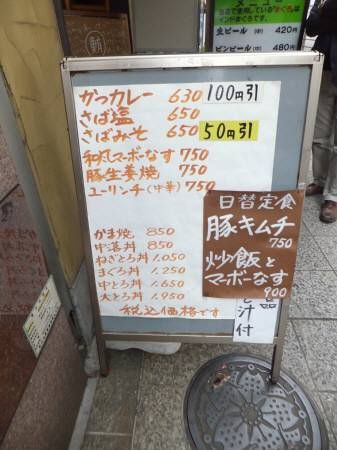 メニュー
当店で使用している"まぐろ"は
インドまぐろです。
生ビール(中) 420円
ビンビール(中) 480円
かつカレー 630 100円引
さば塩 650
さばみそ 650 50円引
和風マーボーなす 750
豚生姜焼 750
ユーリンチ(中華) 750
日替定食
豚キムチ
750
炒飯と
マーボーなす
900
かま焼 850
中落丼 850
ねぎとろ丼 1.050
まぐろ丼 1.250
中とろ丼 1.650
大とろ丼 1.950
税込価格です
汁
付